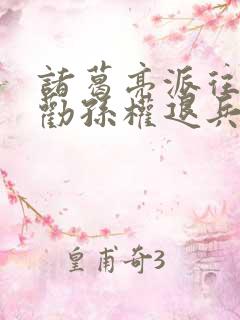 諸葛亮派往
勸孫權退兵
皇甫奇3